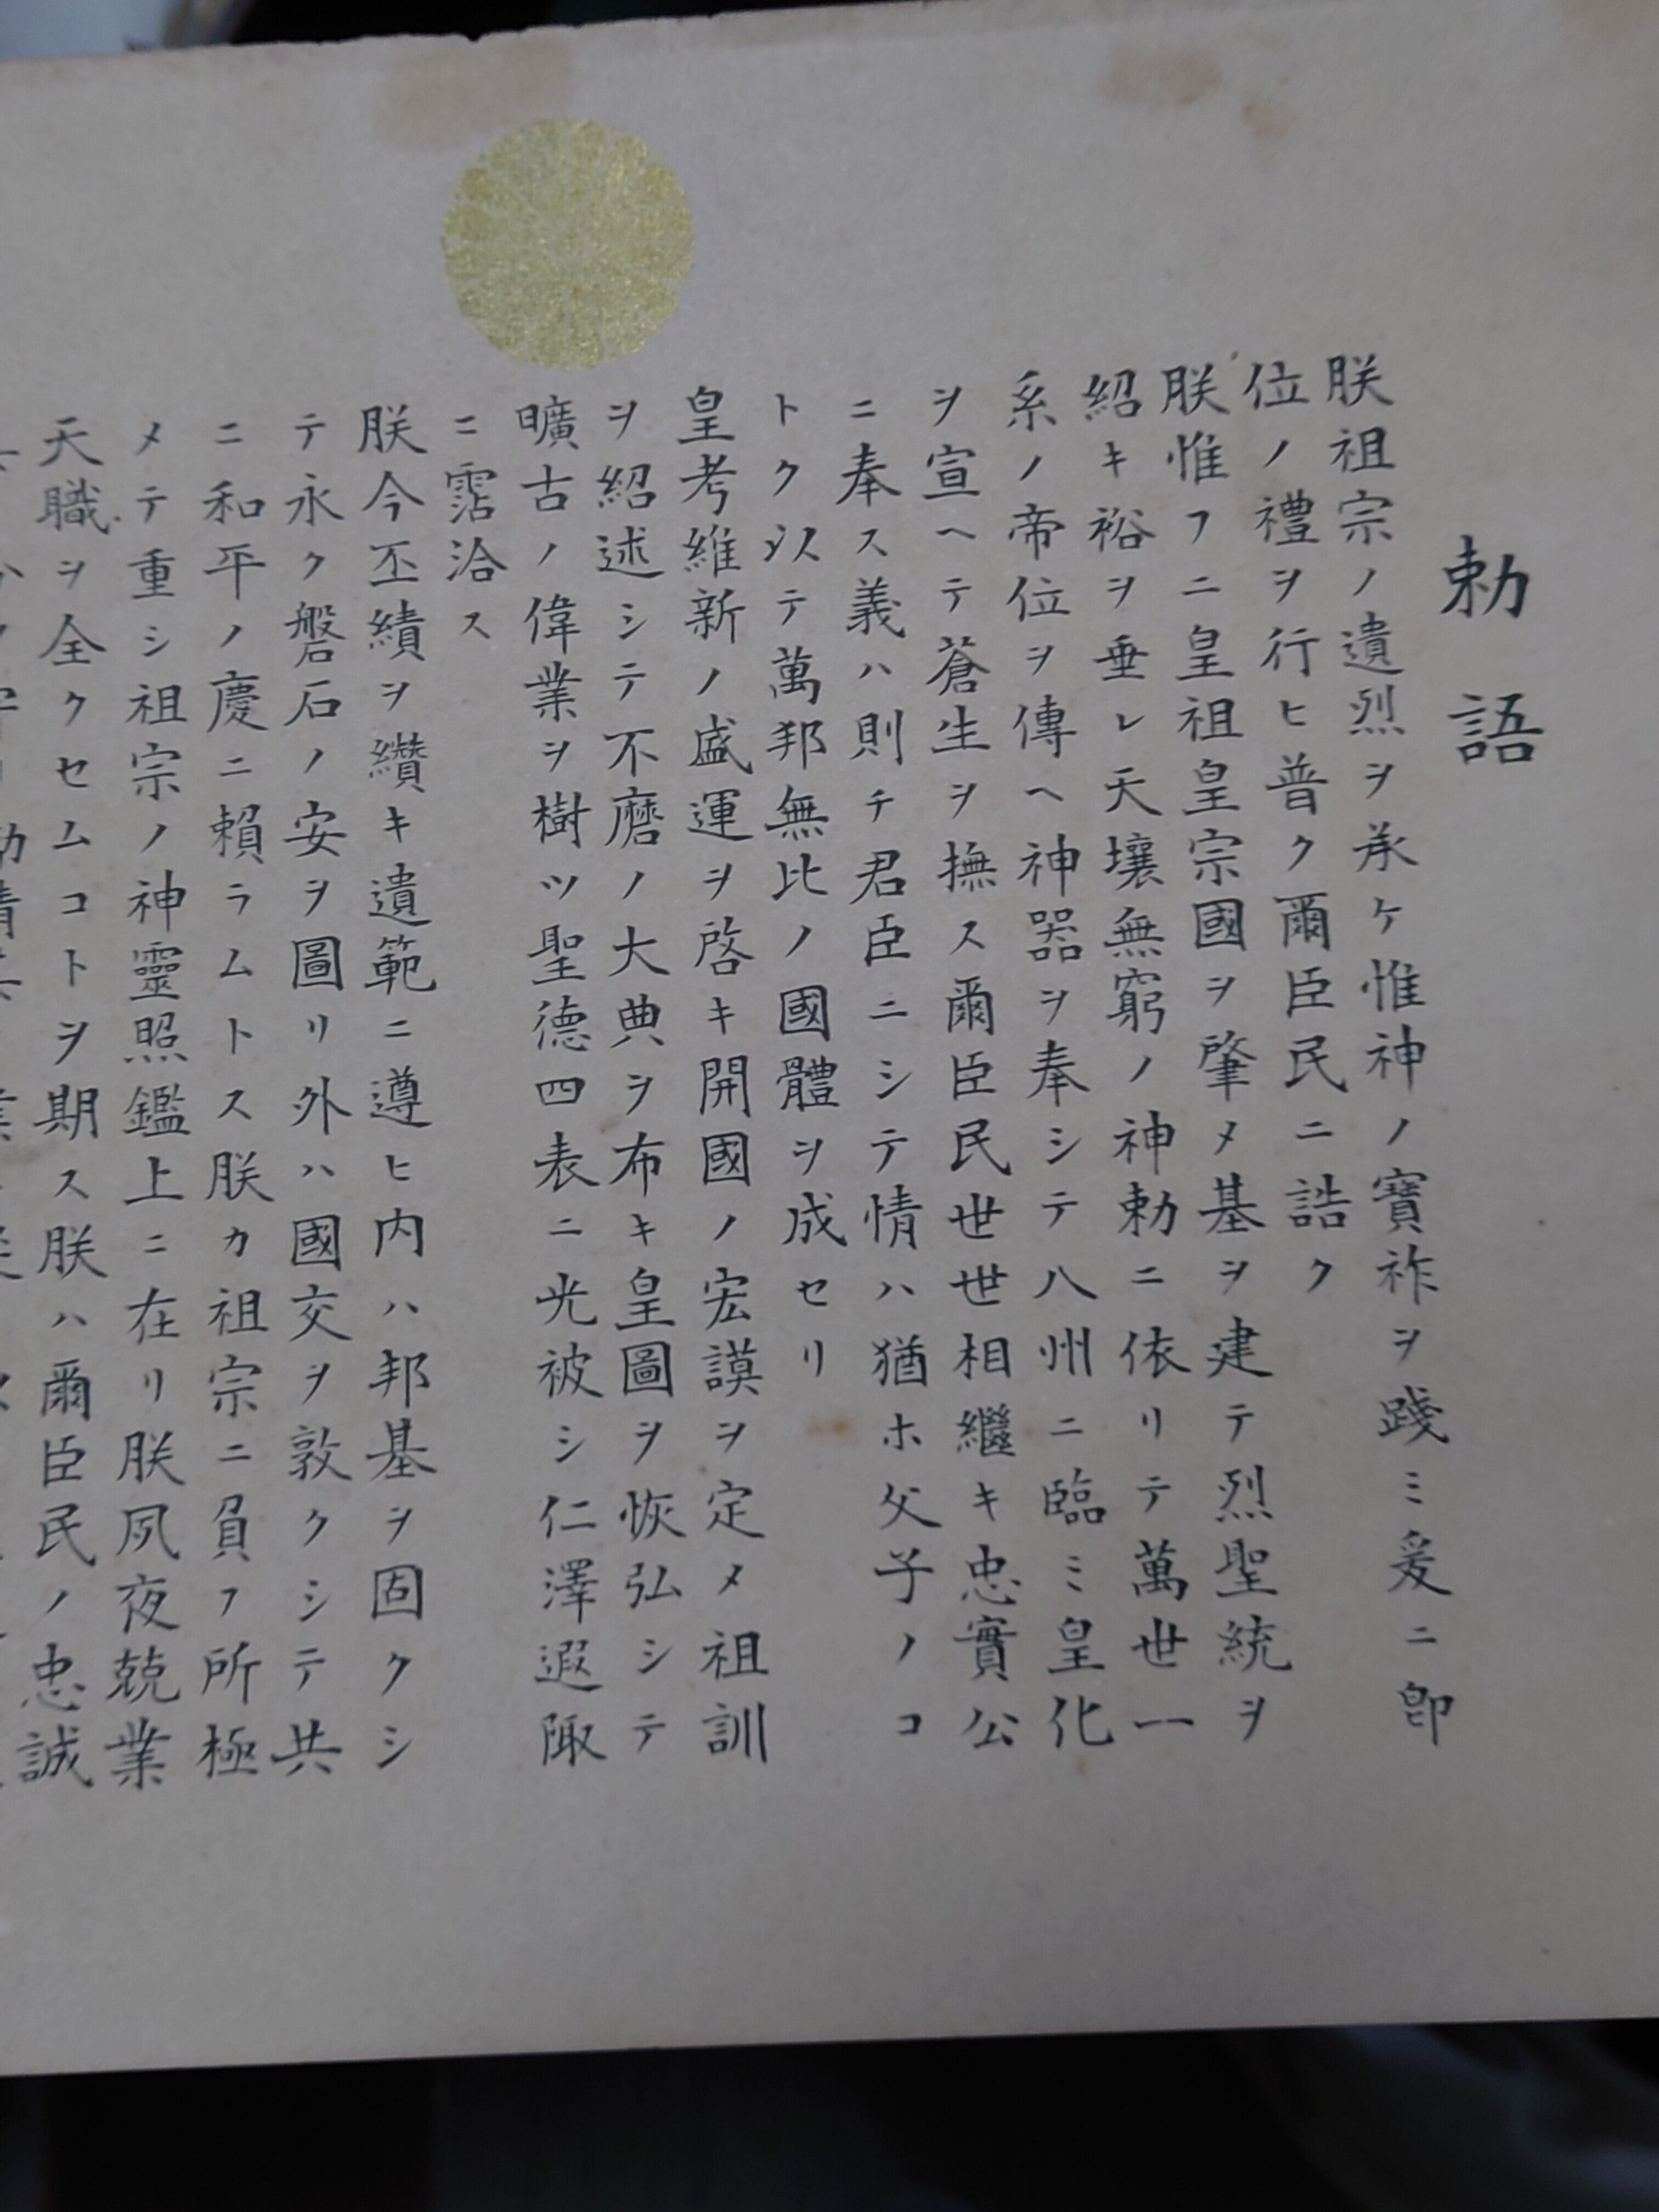 勅語
朕祖宗ノ遺烈ヲ承ケ惟神ノ寶祚ヲ踐ミ爰ニ卽
位ノ禮ヲ行ヒ普ク爾臣民ニ誥ク
朕惟フニ皇祖皇宗國ヲ肇メ基ヲ建テ烈聖統ヲ
紹キ裕ヲ垂レ天壤無窮ノ神勅ニ依リテ萬世一
系ノ帝位ヲ傳ヘ神器ヲ奉シテ八州ニ臨ミ皇化
ヲ宣ヘテ蒼生ヲ撫ス爾臣民世世相繼キ忠實公
ニ奉ス義ハ則チ君臣ニシテ情ハ猶ホ父子ノコ
トク以テ萬邦無比ノ國體ヲ成セリ
皇考維新ノ盛運ヲ啓キ開國ノ宏謨ヲ定メ祖訓
ヲ紹述シテ不磨ノ大典ヲ布キ皇圖ヲ恢弘シテ
曠古ノ偉業ヲ樹ツ聖德四表ニ光被シ仁澤遐陬
ニ霑洽ス
朕今丕績ヲ纘キ遺範ニ遵ヒ内ハ邦基ヲ固クシ
テ永ク磐石ノ安ヲ圖リ外ハ國交ヲ敦クシテ共
ニ和平ノ慶ニ賴ラムトス朕カ祖宗ニ負フ所極
メテ重シ祖宗ノ神靈照鑑上ニ在リ朕夙夜兢業
天職ヲ全クセムコトヲ期ス朕ハ爾臣民ノ忠誠